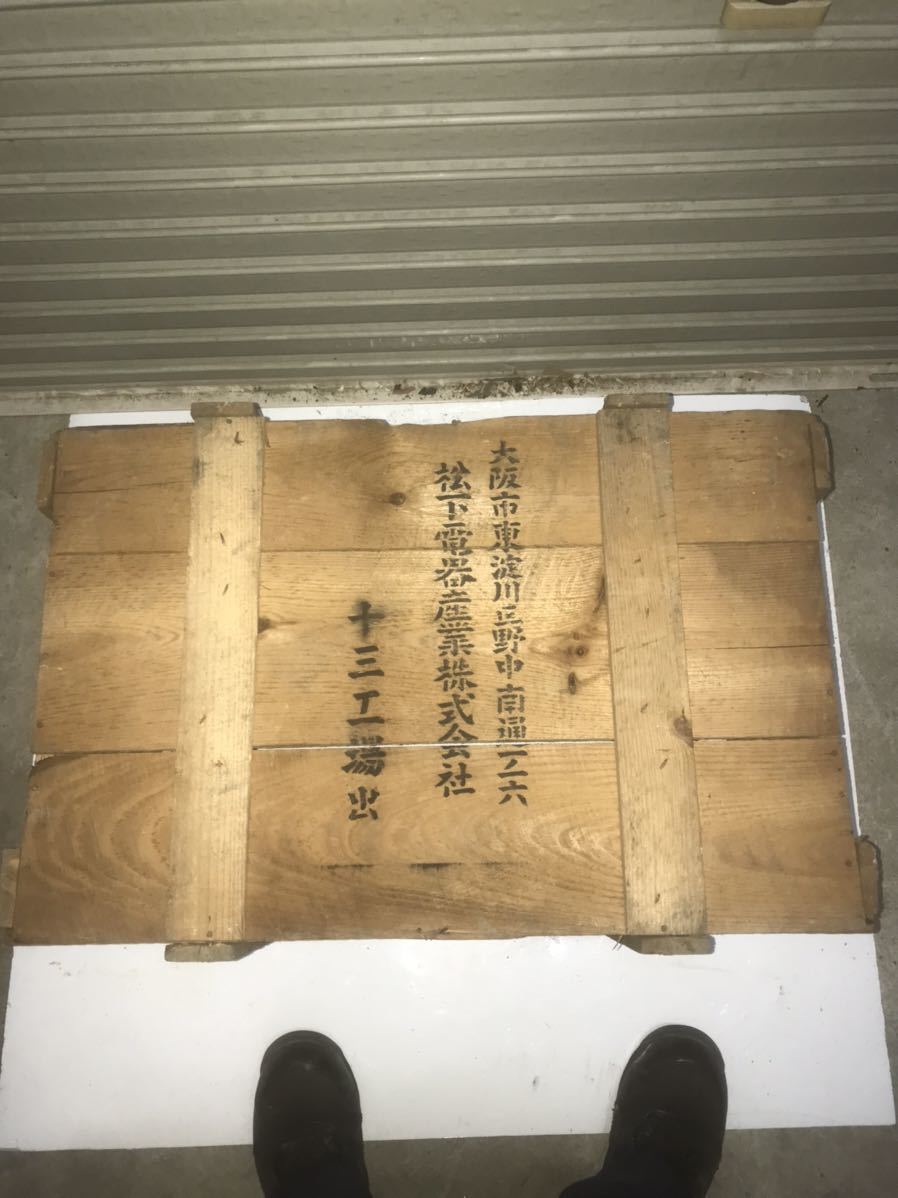 大阪市東淀川区野中南通一ノ六
松下電器産業株式会社
十三工場出